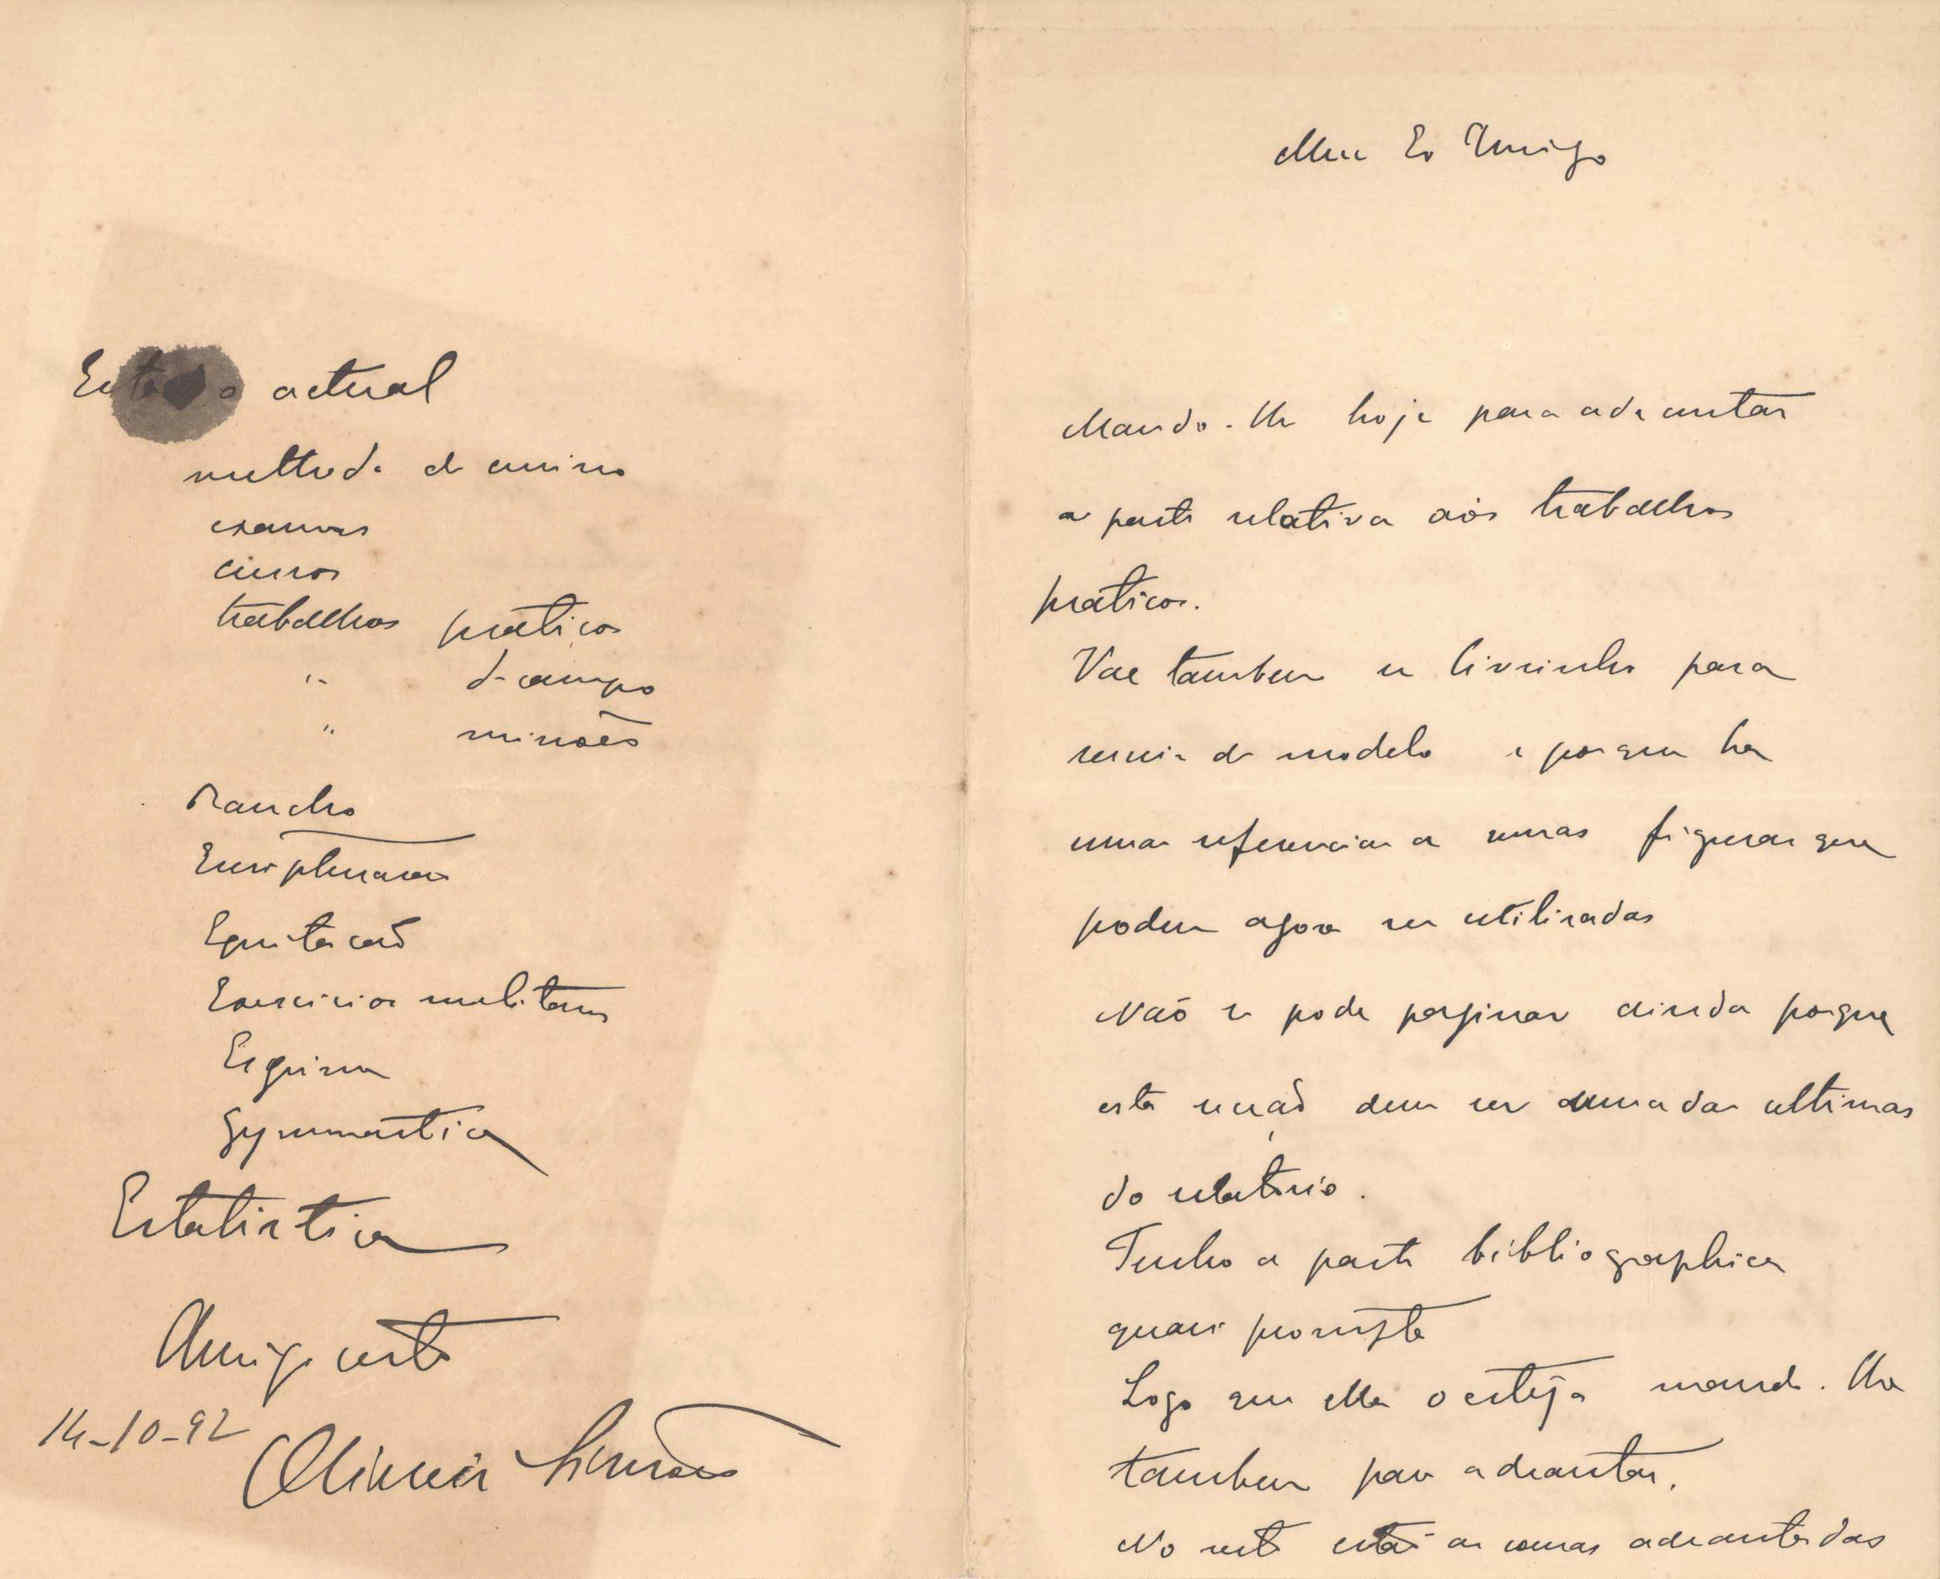 Meu Ex Amigo
Mando-lhe hoje para adeantar
a parte relativa aós trabalhos
praticos.
Vae tambem o livrinho para
servir de modelo e porque ha
uma referencia a umas figuras que
podem agora ser utilisadas
Não se pode paginar ainda porque
esta secção deve ser uma das ultimas
do relatorio.
Tenho a parte bibliographica
quasi prompta
Logo que ella o esteja mando-lha
tambem para adeantar.
No resto estão as cousas adeantadas
Estado actual
methodo de ensino
exames
cursos
trabalhos praticos
" de campo
" missões
Rancho
Enfermaria
Equitação
Exercicios militares
Esgrima
Gymnastica
Estatistica
Amigo certo
14-10-92
Oliveira Simões